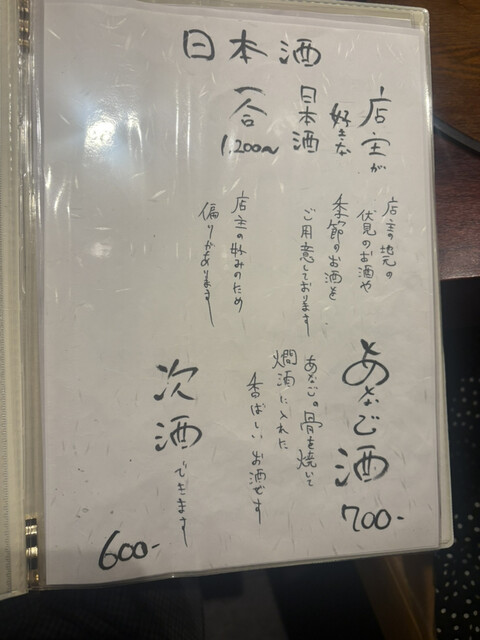 日本酒
店主が
好きな
日本酒
一合
1,200〜
店主の地元の
伏見のお酒や
季節のお酒を
ご用意しております
店主の好みのため
偏りがあります
あなご酒
700-
あなご。骨を焼いて
燗酒に入れた
香ばしいお酒です
次酒できます
600-